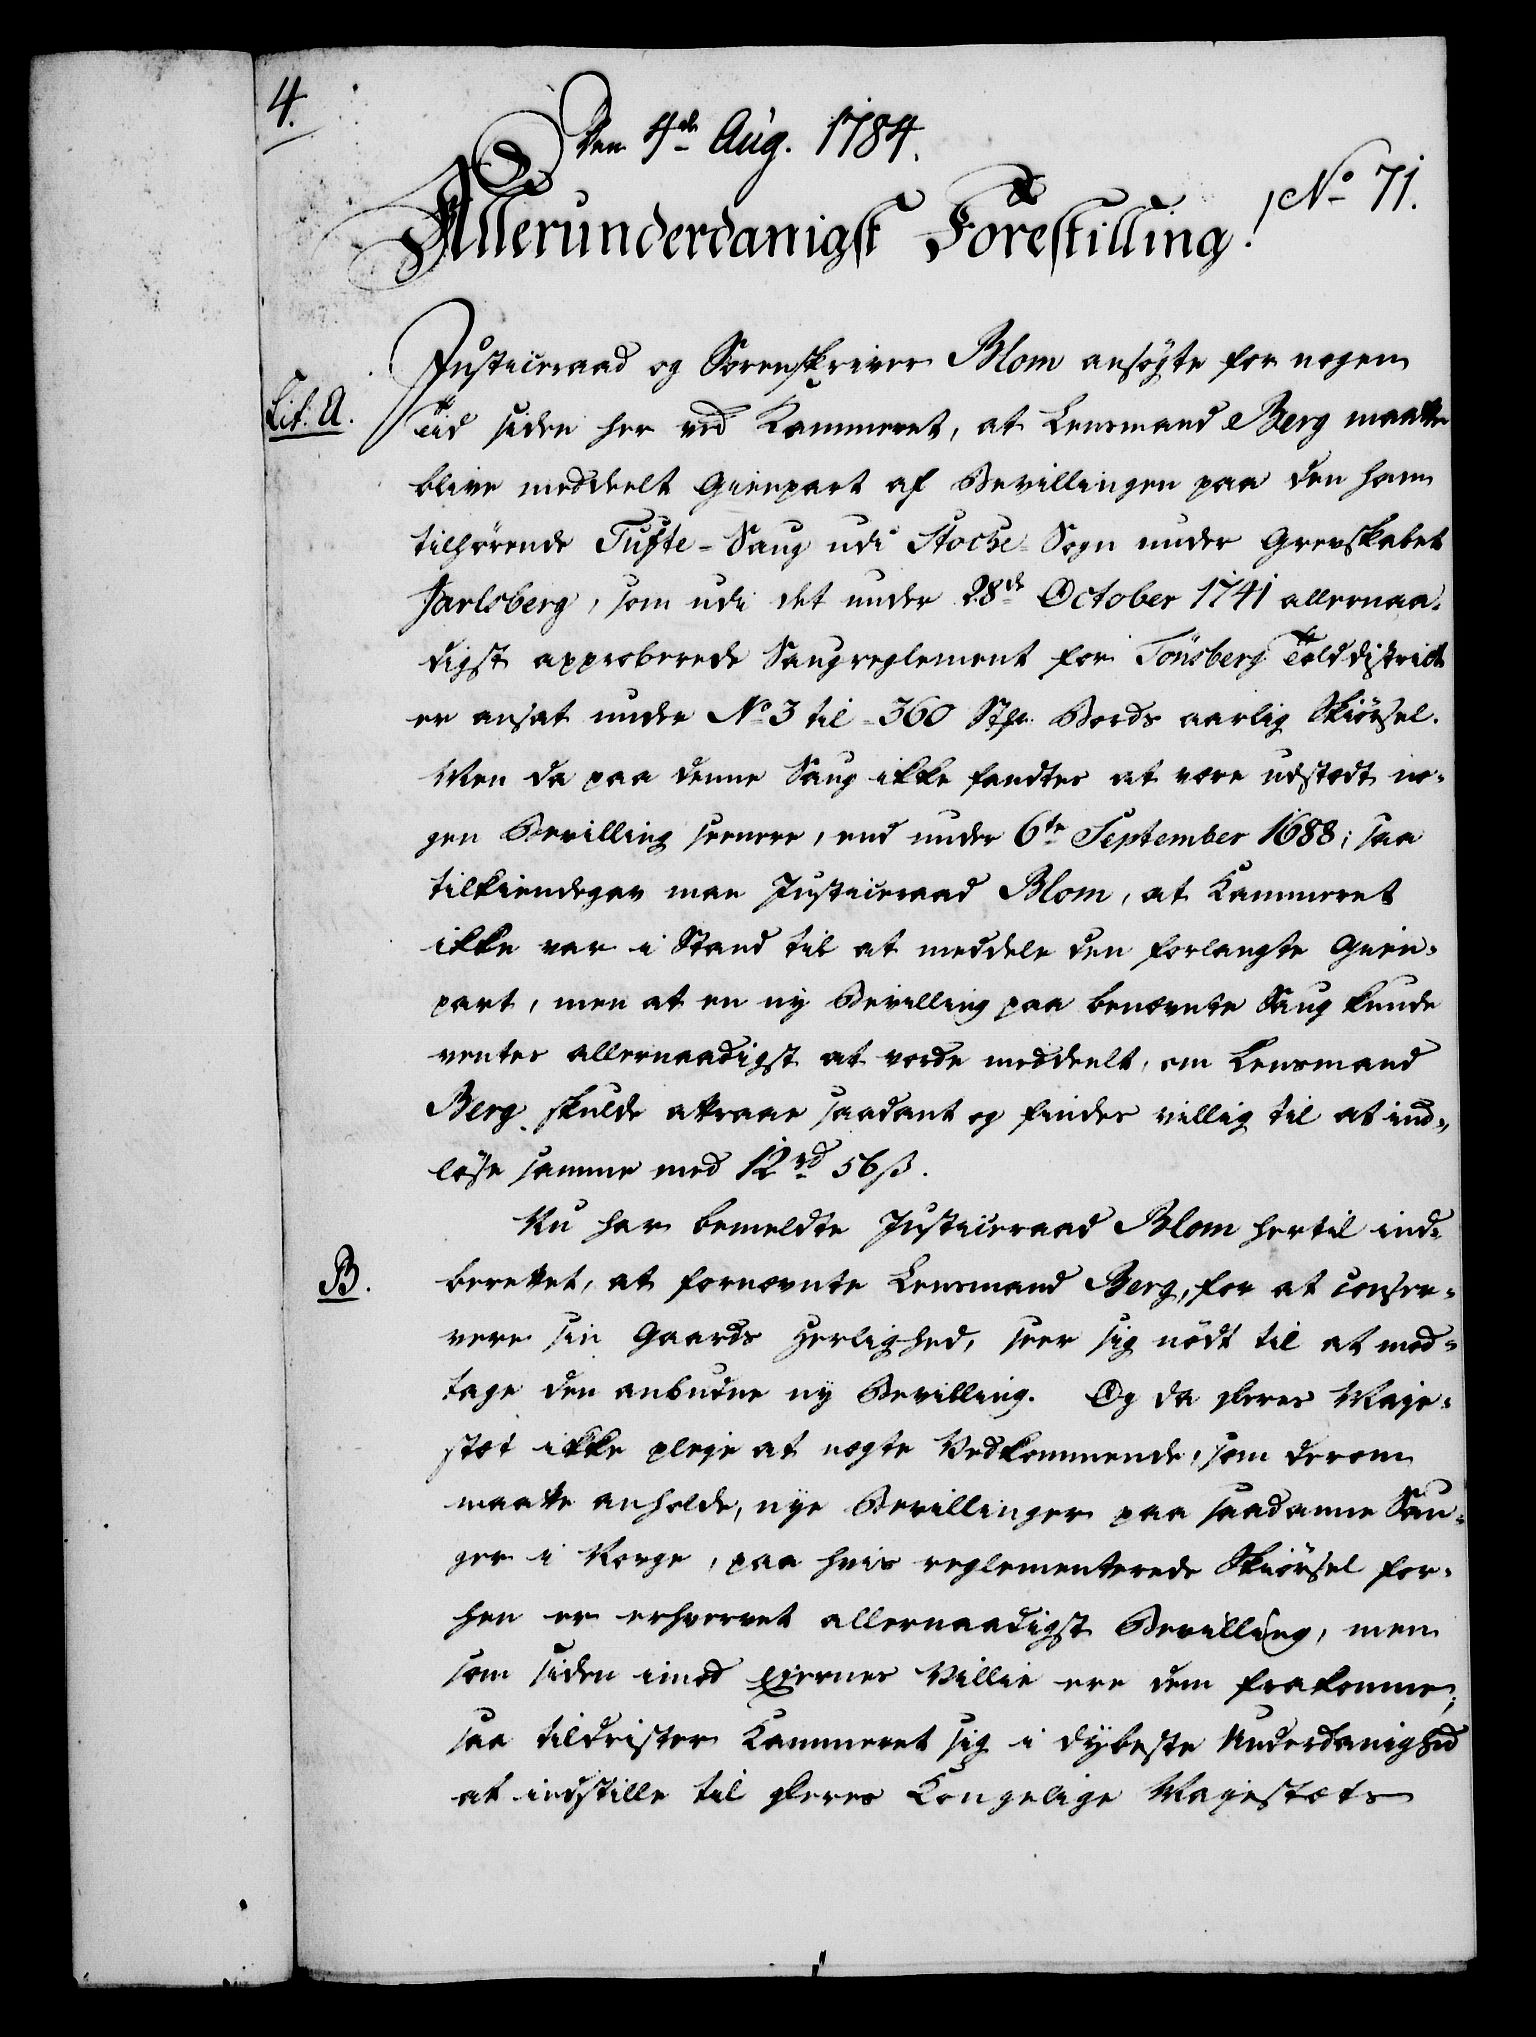 4.
Den 4de Aug. 1784.
No 71.
Allerunderdanigst Forestilling!
Justiceraad og Sorenskriver Blom ansøgte for nogen
Lit. A.
Tid siden her ved Kammeret, at Lensmand Berg maatte
blive meddeelt Gienpart af Bevillingen paa den ham
tilhørende Tufte-Saug udi Stocke-Sogn under Grevskabet
Jarlsberg, som udi det under 28de October 1741 allernaa-
digst approberede Saugreglement for Tönsberg Tolddistrict
er ansat under No 3 til 360 Stkr. Bords aarlig Skiörsel.
Men da paa denne Saug ikke fandtes at være udstædt no-
gen Bevilling seenere, end under 6te September 1688; saa
tilkiendegav man Justiceraad Blom, at Kammeret
ikke var i Stand til at meddele den forlangte Gien-
part, men at en ny Bevilling paa benævnte Saug kunde
ventes allernaadigst at vorde meddeelt, om Lensmand
Berg skulde attraae saadant og findes villig til at ind-
løse samme med 12rd 56ß.
Nu har bemeldte Justiceraad Blom hertil ind-
B.
berettet, at fornævnte Lensmand Berg, for at conser-
vere sin Gaards Herlighed, seer sig nödt til at mod-
tage den anbudne ny Bevilling. Og da Deres Maje-
stæt ikke pleje at nægte Vedkommende, som derom
maatte anholde, nye Bevillinger paa saadanne Sau-
ger i Norge, paa hvis reglementerede Skiörsel for-
hen er erhvervet allernaadigst Bevilling, men
som siden imod Eiernes Villie ere dem frakomne;
saa tildrister Kammeret sig i dybeste Underdanighed
at indstille til Deres Kongelige Majestæts